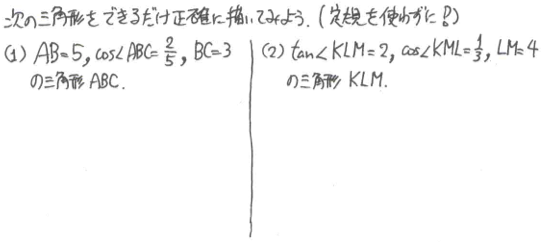 次の三角形をできるだけ正確に描いてみよう.(定規を使わずに!?)
(1) AB=5, cos∠ABC=2/5, BC=3
の三角形 ABC.
(2) tan∠KLM=2, cos∠KML=1/3, LM=4
の三角形 KLM.